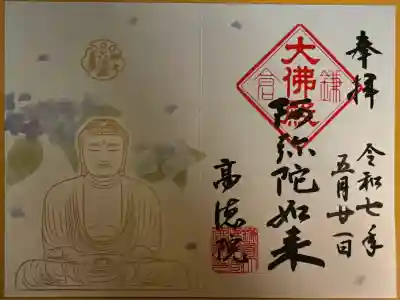 奉拝
令和七年
五月廿一日
大佛殿
鎌
倉
阿弥陀如来
高徳院